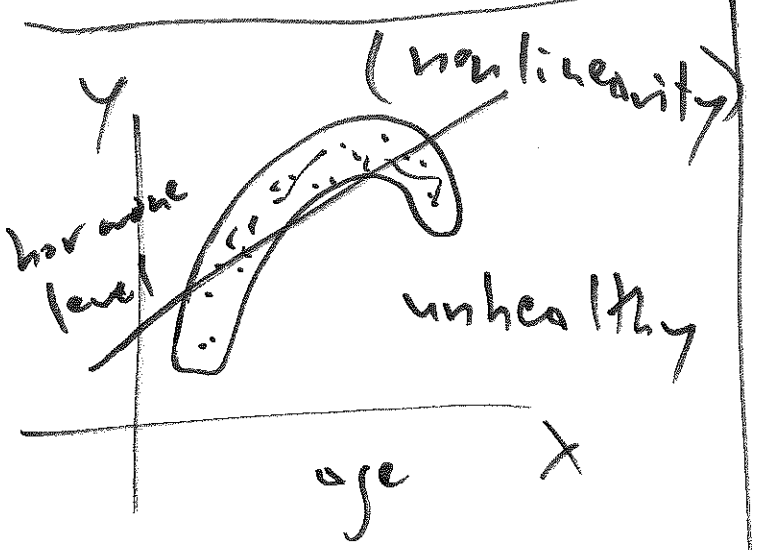 (nonlinearity)
Y
hormone
level
unhealthy
X
age